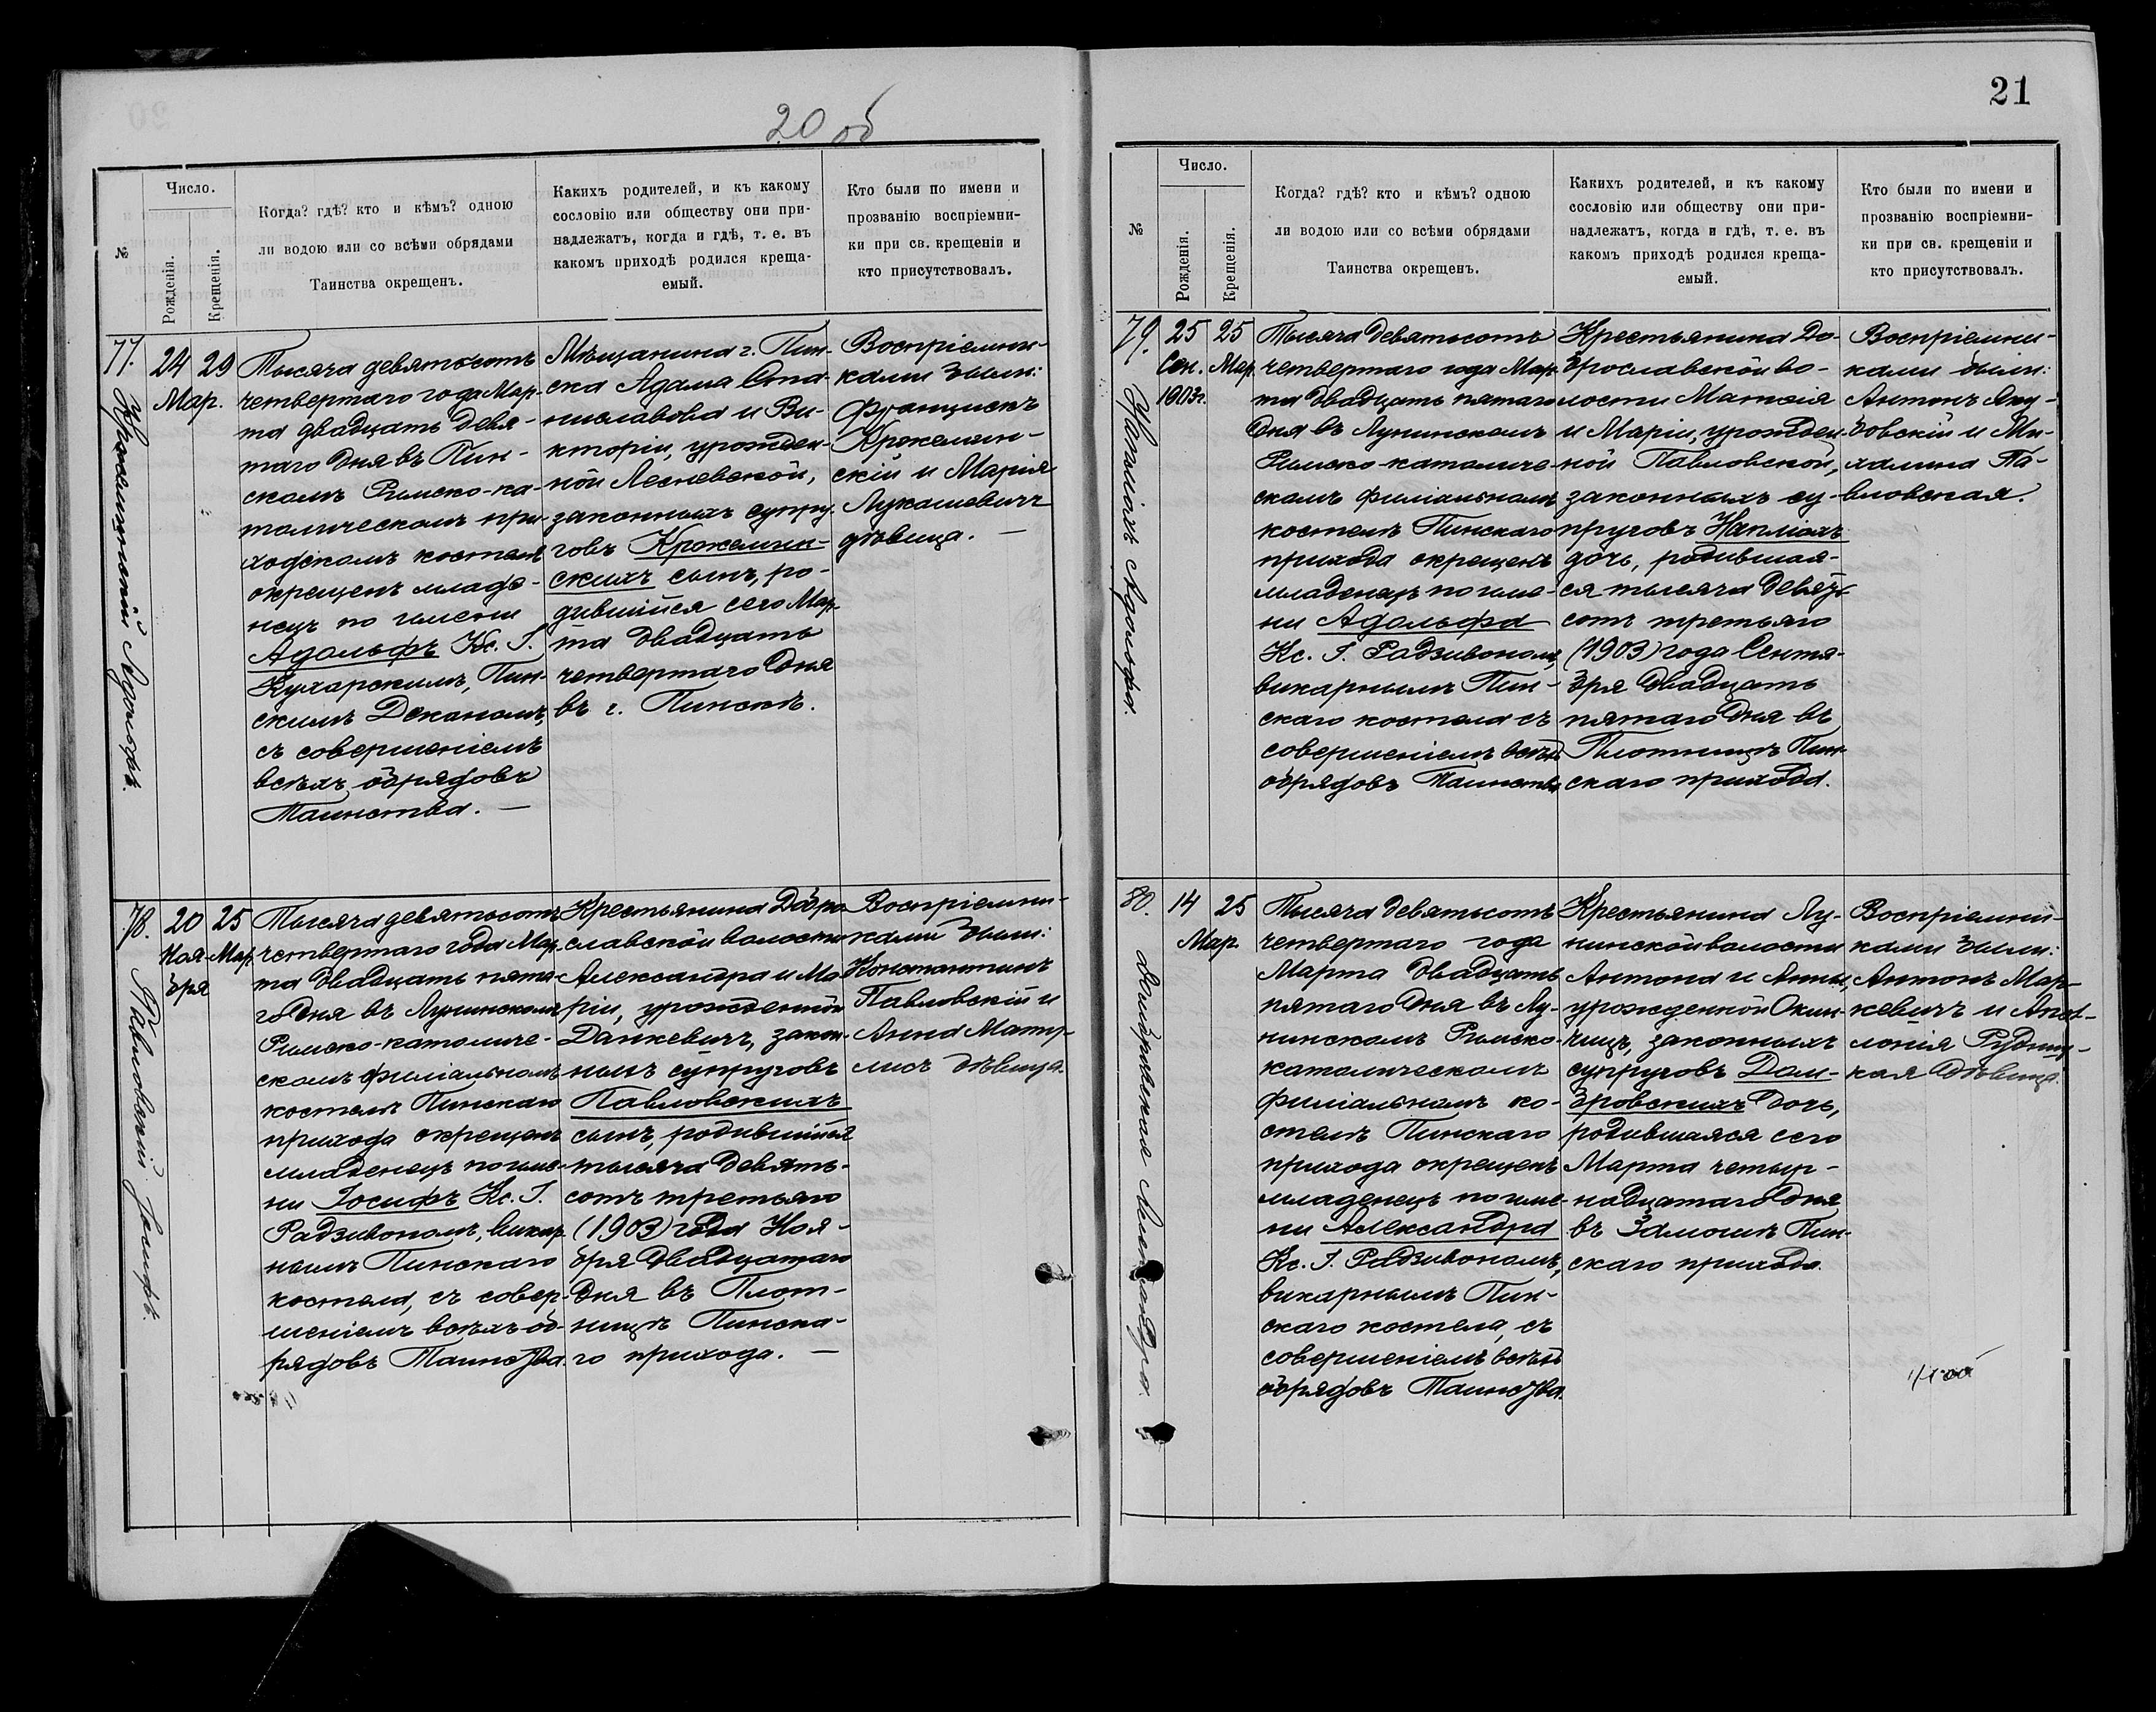 20 об
№
Число.
Рожденія.
Крещенія.
Когда? гдѣ? кто и кѣмъ? одною
ли водою или со всѣми обрядами
Таинства окрещенъ.
Какихъ родителей, и къ какому
сословію или обществу они при-
надлежатъ, когда и гдѣ, т. е. въ
какомъ приходѣ родился креща-
емый.
Кто были по имени и
прозванію воспріемни-
ки при св. крещеніи и
кто присутствовалъ.
77.
Адольфъ.
24 29
Мар.
Тысяча девятьсотъ
четвертаго года Мар-
та двадцать девя-
таго дня въ Пин-
скомъ Римско-ка-
толическомъ при-
ходскомъ костелѣ
окрещенъ младе-
нецъ по имени
Адольфъ Кс. І.
Кухарскимъ, Пин-
скимъ Деканомъ,
съ совершеніемъ
всѣхъ обрядовъ
Таинства. —
Мѣщанина г. Пин-
ска Адама Ста-
ниславова и Ви-
кторіи, урожден-
ной Лесневской,
законныхъ супру-
говъ Крожемин-
скихъ сынъ, ро-
дившійся сего Мар-
та двадцать
четвертаго дня
въ г. Пинскѣ.
Воспріемни-
ками были:
Францискъ
Кржемин-
скій и Марія
Лукашевичъ
дѣвица. —
78.
Павловскій Іосифъ.
20 25
Ноя- Мар.
бря
Тысяча девятьсотъ
четвертаго года Мар-
та двадцать пята-
го дня въ Лунинскомъ
Римско-католиче-
скомъ филіальномъ
костелѣ Пинскаго
прихода окрещенъ
младенецъ по име-
ни Іосифъ Кс. І.
Радзивономъ, викар-
нымъ Пинскаго
костела, съ совер-
шеніемъ всѣхъ об-
рядовъ Таинства.
Крестьянина Добро-
славской волости
Александра и Ма-
ріи, урожденной
Данкевичъ, закон-
ныхъ супруговъ
Павловскихъ
сынъ, родившійся
тысяча девять-
сотъ третьяго
(1903) года Ноя-
бря двадцатаго
дня въ Плот-
ницѣ Пинска-
го прихода. —
Воспріемни-
ками были:
Константинъ
Павловскій и
Анна
дѣвица.
21
№
Число.
Рожденія.
Крещенія.
Когда? гдѣ? кто и кѣмъ? одною
ли водою или со всѣми обрядами
Таинства окрещенъ.
Какихъ родителей, и къ какому
сословію или обществу они при-
надлежатъ, когда и гдѣ, т. е. въ
какомъ приходѣ родился креща-
емый.
Кто были по имени и
прозванію воспріемни-
ки при св. крещеніи и
кто присутствовалъ.
79.
Адольфа.
25 25
Сен. Мар.
1903г.
Тысяча девятьсотъ
четвертаго года Мар-
та двадцать пятаго
дня въ Лунинскомъ
Римско-католиче-
скомъ филіальномъ
костелѣ Пинскаго
прихода окрещенъ
младенецъ по име-
ни Адольфа
Кс. І. Радзивономъ,
викарнымъ Пин-
скаго костела съ
совершеніемъ всѣхъ
обрядовъ Таинства.
Крестьянина До-
брославской во-
лости Матвія
и Маріи, урожден-
ной Павловской,
законныхъ су-
пруговъ
дочь, родившая-
ся тысяча девять-
сотъ третьяго
(1903) года Сентя-
бря двадцать
пятаго дня въ
Плотницѣ Пин-
скаго прихода.
Воспріемни-
ками были:
Антонъ Яку-
бовскій и Ми-
халина Па-
вловская.
80.
Домбровская Александра.
14 25
Мар.
Тысяча девятьсотъ
четвертаго года
Марта двадцать
пятаго дня въ Лу-
нинскомъ Римско-
католическомъ
филіальномъ ко-
стелѣ Пинскаго
прихода окрещенъ
младенецъ по име-
ни Александра
Кс. І. Радзивономъ,
викарнымъ Пин-
скаго костела, съ
совершеніемъ всѣхъ
обрядовъ Таинства.
Крестьянина Лу-
нинской волости
Антона и Анны,
урожденной
законныхъ
супруговъ Дом-
бровскихъ дочь,
родившаяся сего
Марта четыр-
надцатаго дня
въ Замошѣ Пин-
скаго прихода.
Воспріемни-
ками были:
Антонъ Мар-
кевичъ и Апол-
лонія Рудниц-
кая дѣвица.